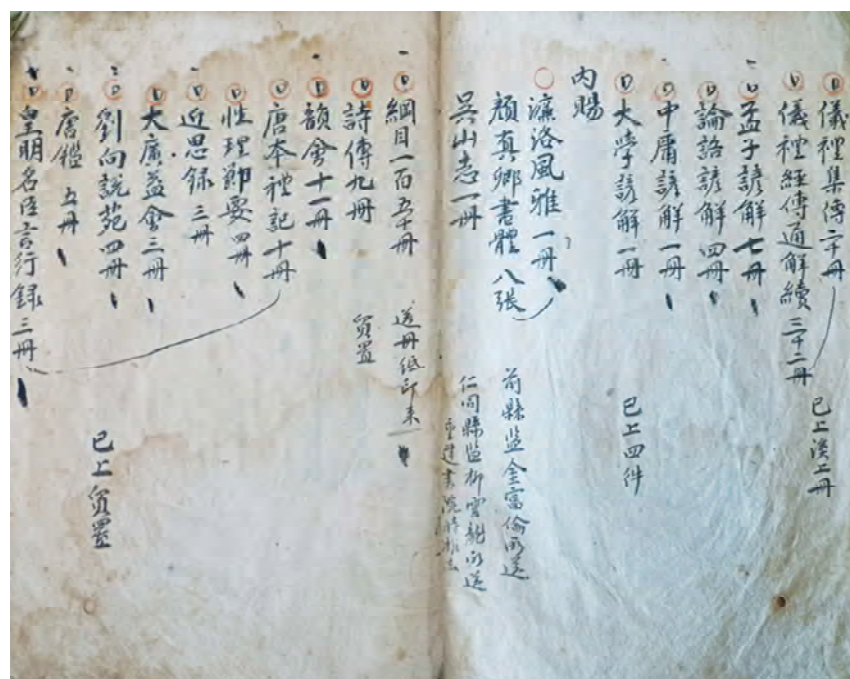 儀禮集傳二十冊
儀禮經傳通解續三十二冊
已上溪上冊
孟子諺解七冊
論語諺解四冊
中庸諺解一冊
大學諺解一冊
已上四件
內賜
濂洛風雅一冊
顔真卿書體八張
前縣監金富倫所送
吳山志一冊
仁同縣監柳雲龍所送
重建書院時
綱目一百五十冊
送冊紙印来
詩傳九冊
貿置
韻會十一冊
唐本禮記十冊
性理節要四冊
近思録三冊
大廣益會三冊
劉向說苑四冊
唐鑑五冊
皇明名臣言行録三冊
已上貿置